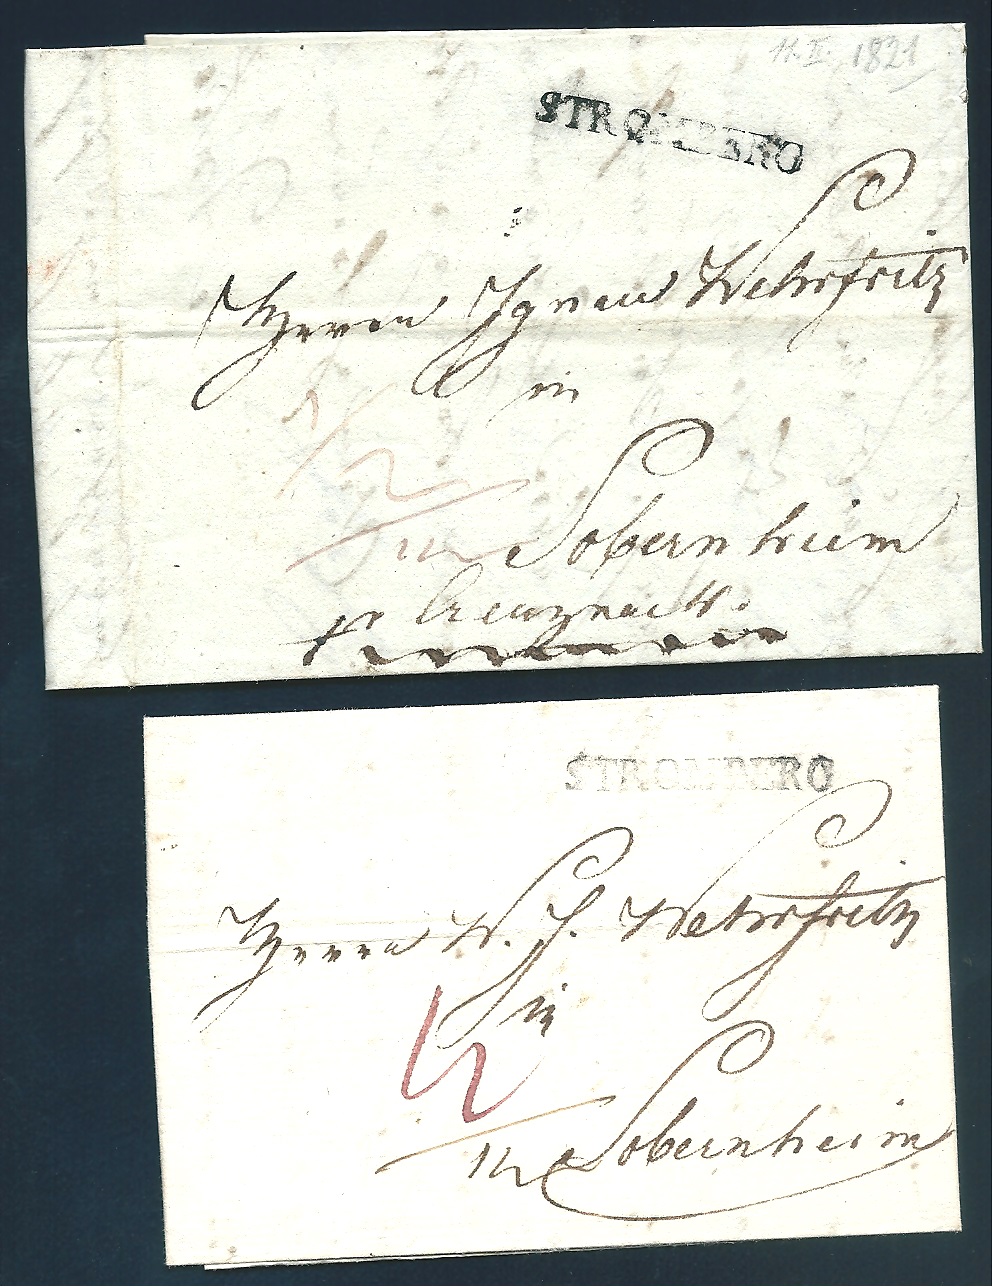 11. II. 1821
STROMBERG
Herrn Ignaz Wehrfritz
in
Sobernheim
pr Creuznach.
STROMBERG
Herrn W. J. Wehrfritz
in
Sobernheim